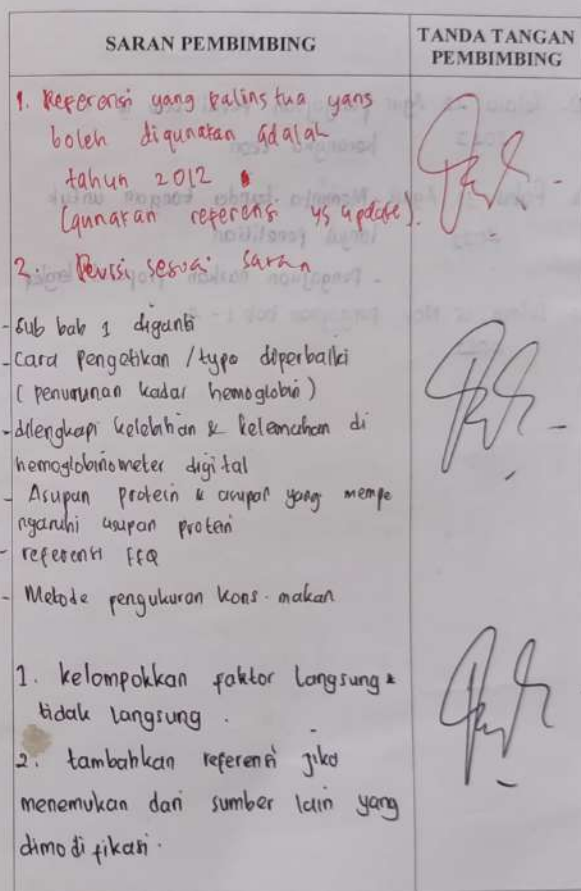 SARAN PEMBIMBING
TANDA TANGAN
PEMBIMBING
1. Referensi yang palinstua yans
boleh digunakan adalah
tahun 2012
(gunakan referensi yg update).
2. Revisi sesuai saran
- Sub bab 1 diganti
- Cara pengetikan / typo diperbaiki
( penurunan kadar hemoglobin )
- dilengkapi kelebihan & kelemahan di
hemoglobinometer digital
- Asupan protein & asupan yang mempe
ngaruhi asupan protein
- referensi FFQ
- Metode pengukuran kons. makan
1. kelompokkan faktor langsung &
tidak langsung .
2. tambahkan referensi jika
menemukan dari sumber lain yang
dimodifikasi.